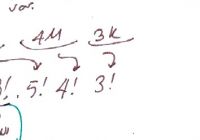 var.
4M 3K
3! . 5! 4! 3!